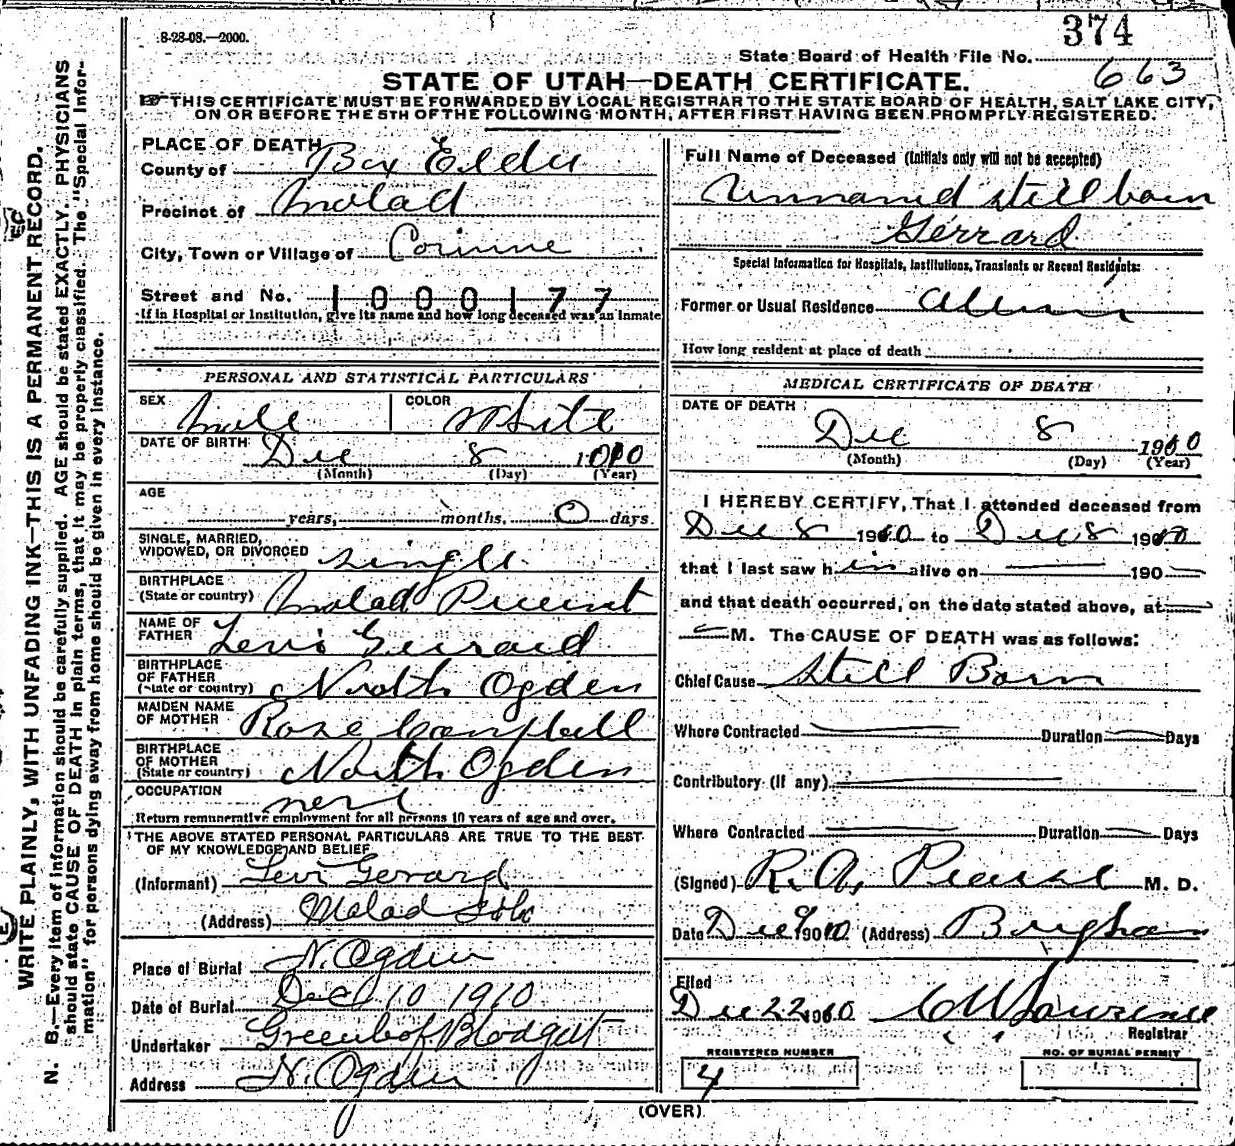 8-28-08.—2000.
374
State Board of Health File No.
663
STATE OF UTAH—DEATH CERTIFICATE.
THIS CERTIFICATE MUST BE FORWARDED BY LOCAL REGISTRAR TO THE STATE BOARD OF HEALTH, SALT LAKE CITY,
ON OR BEFORE THE 5TH OF THE FOLLOWING MONTH, AFTER FIRST HAVING BEEN PROMPTLY REGISTERED.
WRITE PLAINLY, WITH UNFADING INK—THIS IS A PERMANENT RECORD.
N. B.—Every item of information should be carefully supplied. AGE should be stated EXACTLY. PHYSICIANS
should state CAUSE OF DEATH in plain terms, that it may be properly classified. The "Special Infor-
mation" for persons dying away from home should be given in every instance.
PLACE OF DEATH
County of Box Elder
Precinct of Malad
City, Town or Village of Corinne
Street and No. 1000177
If in Hospital or Institution, give its name and how long deceased was an inmate
PERSONAL AND STATISTICAL PARTICULARS
SEX Male COLOR White
DATE OF BIRTH Dec 8 1910
(Month) (Day) (Year)
AGE
years, months, 0 days.
SINGLE, MARRIED,
WIDOWED, OR DIVORCED single
BIRTHPLACE
(State or country) Malad Precinct
NAME OF
FATHER Levi Gerrard
BIRTHPLACE
OF FATHER
(State or country) North Ogden
MAIDEN NAME
OF MOTHER Rose Campbell
BIRTHPLACE
OF MOTHER
(State or country) North Ogden
OCCUPATION
Return remunerative employment for all persons 10 years of age and over.
THE ABOVE STATED PERSONAL PARTICULARS ARE TRUE TO THE BEST
OF MY KNOWLEDGE AND BELIEF
(Informant) Levi Gerrard
(Address) Malad
Place of Burial N. Ogden
Date of Burial Dec 10 1910
Undertaker Blodgett
Address N. Ogden
Full Name of Deceased (Initials only will not be accepted)
Unnamed still born
Gerrard
Special Information for Hospitals, Institutions, Transients or Recent Residents:
Former or Usual Residence
How long resident at place of death
MEDICAL CERTIFICATE OF DEATH
DATE OF DEATH
Dec 8 1910
(Month) (Day) (Year)
I HEREBY CERTIFY, That I attended deceased from
Dec 8 1910 to Dec 8 1910
that I last saw him alive on 190
and that death occurred, on the date stated above, at
M. The CAUSE OF DEATH was as follows:
Chief Cause Still Born
Where Contracted Duration Days
Contributory (if any)
Where Contracted Duration Days
(Signed) R. A. Pearse M. D.
Date Dec 9 1910 (Address) Brigham
Filed
Dec 22 1910 C W Lawrence
Registrar
REGISTERED NUMBER
4
NO. OF BURIAL PERMIT
(OVER)